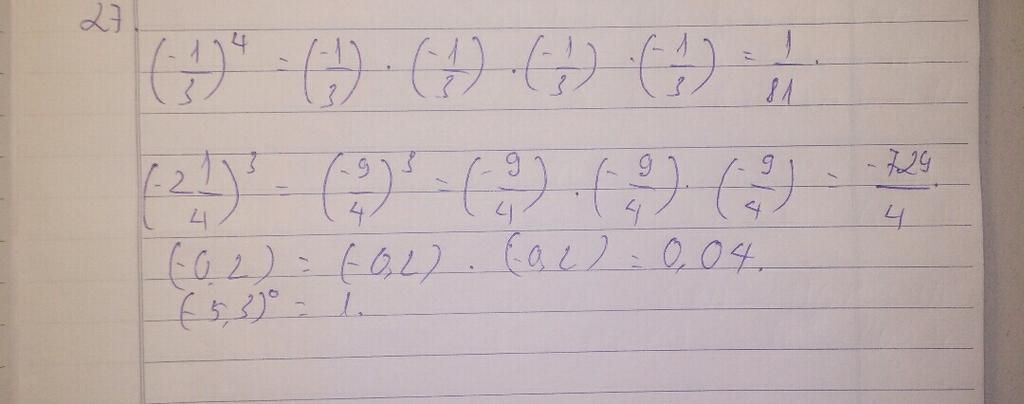 27.
(-1/3)^4 = (-1/3) · (-1/3) · (-1/3) · (-1/3) = 1/81.
(-2 1/4)^3 = (-9/4)^3 = (-9/4) · (-9/4) · (-9/4) = -729/4.
(-0,2) = (-0,2) · (-0,2) = 0,04.
(-5,3)^0 = 1.